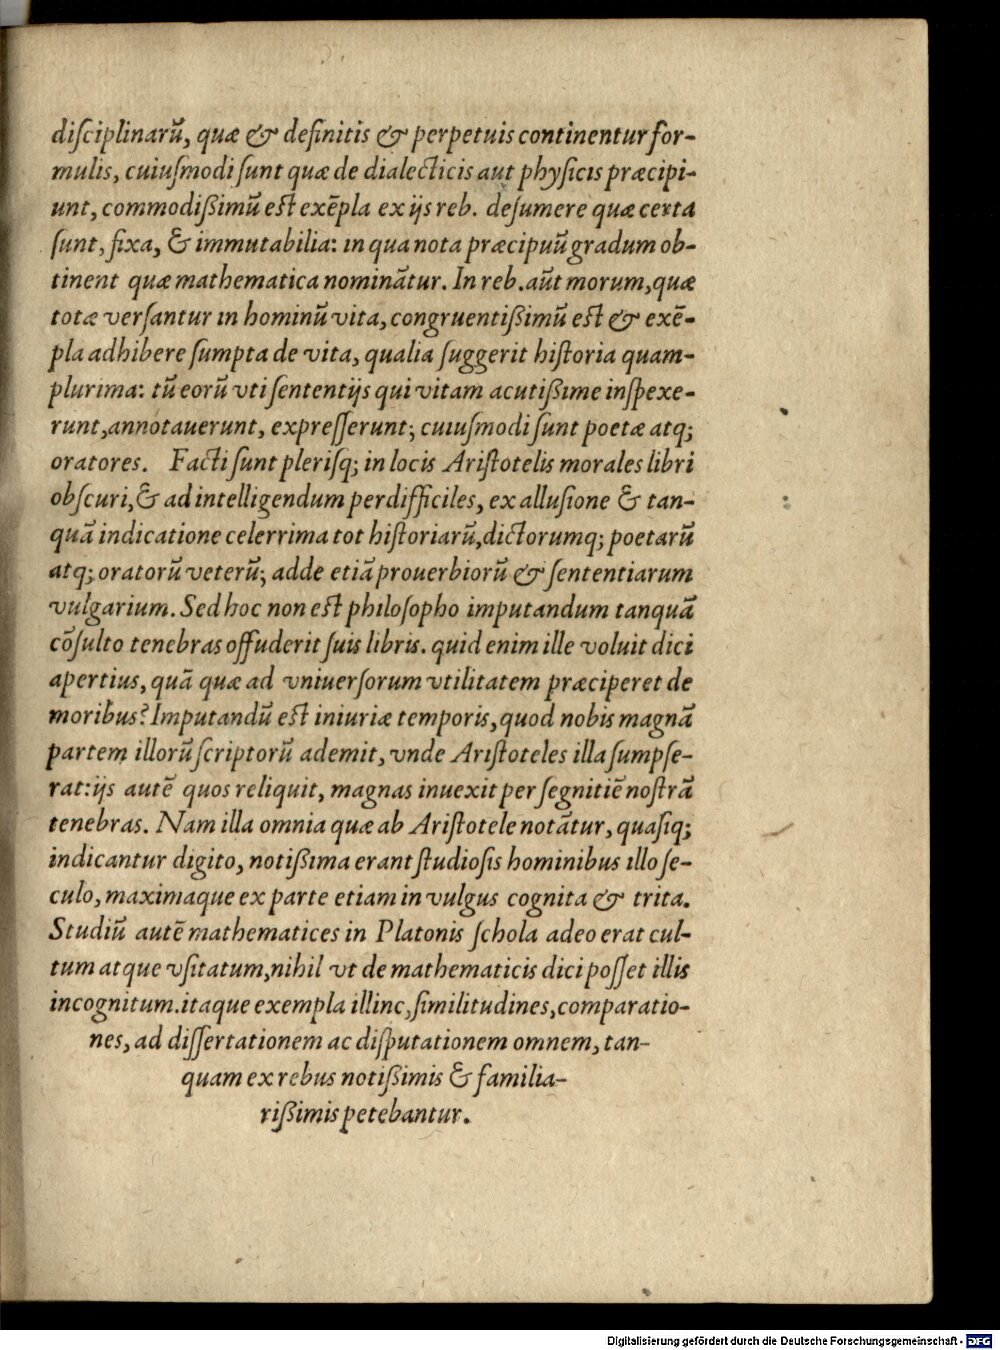 diſciplinarũ, quæ & definitis & perpetuis continentur for-
mulis, cuiuſmodi ſunt quæ de dialecticis aut phyſicis præcipi-
unt, commodißimũ est exẽpla ex ijs reb. deſumere quæ certa
ſunt, fixa, & immutabilia: in qua nota præcipuũ gradum ob-
tinent quæ mathematica nominãtur. In reb. aũt morum, quæ
totæ verſantur in hominũ vita, congruentißimũ est & exẽ-
pla adhibere ſumpta de vita, qualia ſuggerit hiſtoria quam-
plurima: tũ eorũ vti ſententijs qui vitam acutißime inſpexe-
runt, annotauerunt, expreſſerunt; cuiuſmodi ſunt poetæ atq;
oratores. Facti ſunt pleriſq; in locis Ariſtotelis morales libri
obſcuri, & ad intelligendum perdifficiles, ex alluſione & tan-
quã indicatione celerrima tot hiſtoriarũ, dictorumq; poetarũ
atq; oratorũ veterũ; adde etiã prouerbiorũ & ſententiarum
vulgarium. Sed hoc non est philoſopho imputandum tanquã
cõſulto tenebras offuderit ſuis libris. quid enim ille voluit dici
apertius, quã quæ ad vniuerſorum vtilitatem præciperet de
moribus? Imputandũ est iniuriæ temporis, quod nobis magnã
partem illorũ ſcriptorũ ademit, vnde Ariſtoteles illa ſumpſe-
rat: ijs autẽ quos reliquit, magnas inuexit per ſegnitiẽ noſtrã
tenebras. Nam illa omnia quæ ab Ariſtotele notãtur, quaſiq;
indicantur digito, notißima erant ſtudioſis hominibus illo ſe-
culo, maximaque ex parte etiam in vulgus cognita & trita.
Studiũ autẽ mathematices in Platonis ſchola adeo erat cul-
tum atque vſitatum, nihil vt de mathematicis dici poſſet illis
incognitum. itaque exempla illinc, ſimilitudines, comparatio-
nes, ad diſſertationem ac diſputationem omnem, tan-
quam ex rebus notißimis & familia-
rißimis petebantur.
Digitalisierung gefördert durch die Deutsche Forschungsgemeinschaft - DFG